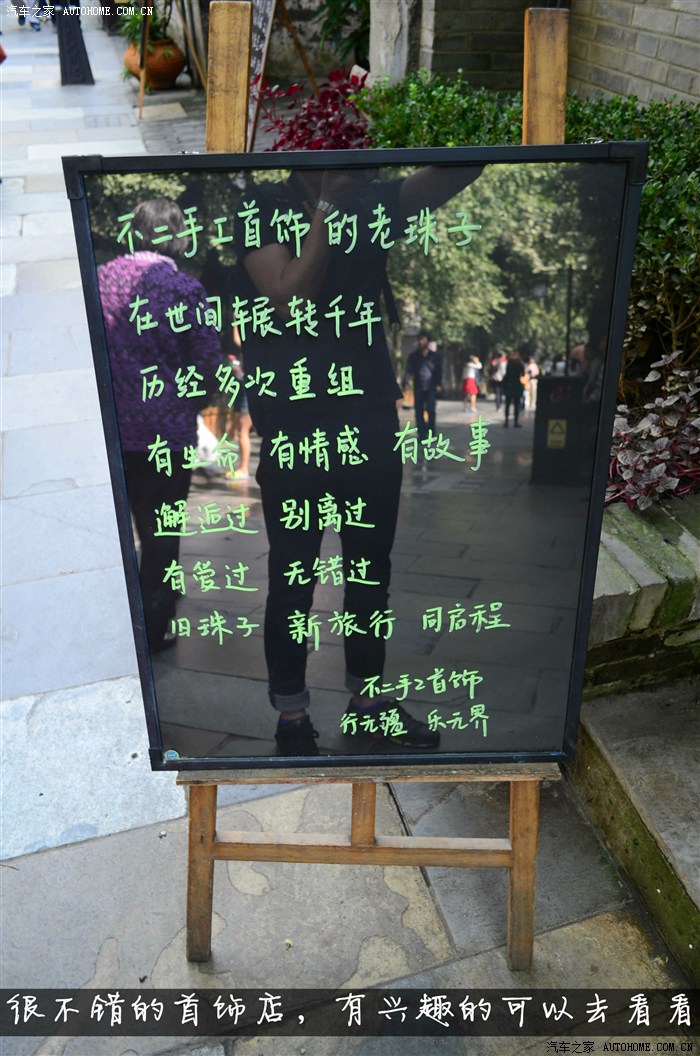 汽车之家 AUTOHOME.COM.CN
汽车之家 AUTOHOME.COM.CN
不二手工首饰的老珠子
在世间辗转千年
历经多次重组
有生命 有情感 有故事
邂逅过 别离过
有爱过 无错过
旧珠子 新旅行 同启程
不二手工首饰
行无疆 乐无界
很不错的首饰店，有兴趣的可以去看看.
汽车之家 AUTOHOME.COM.CN